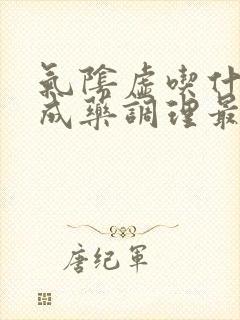 氣陰虛喫什
成藥調理最
唐纪軍